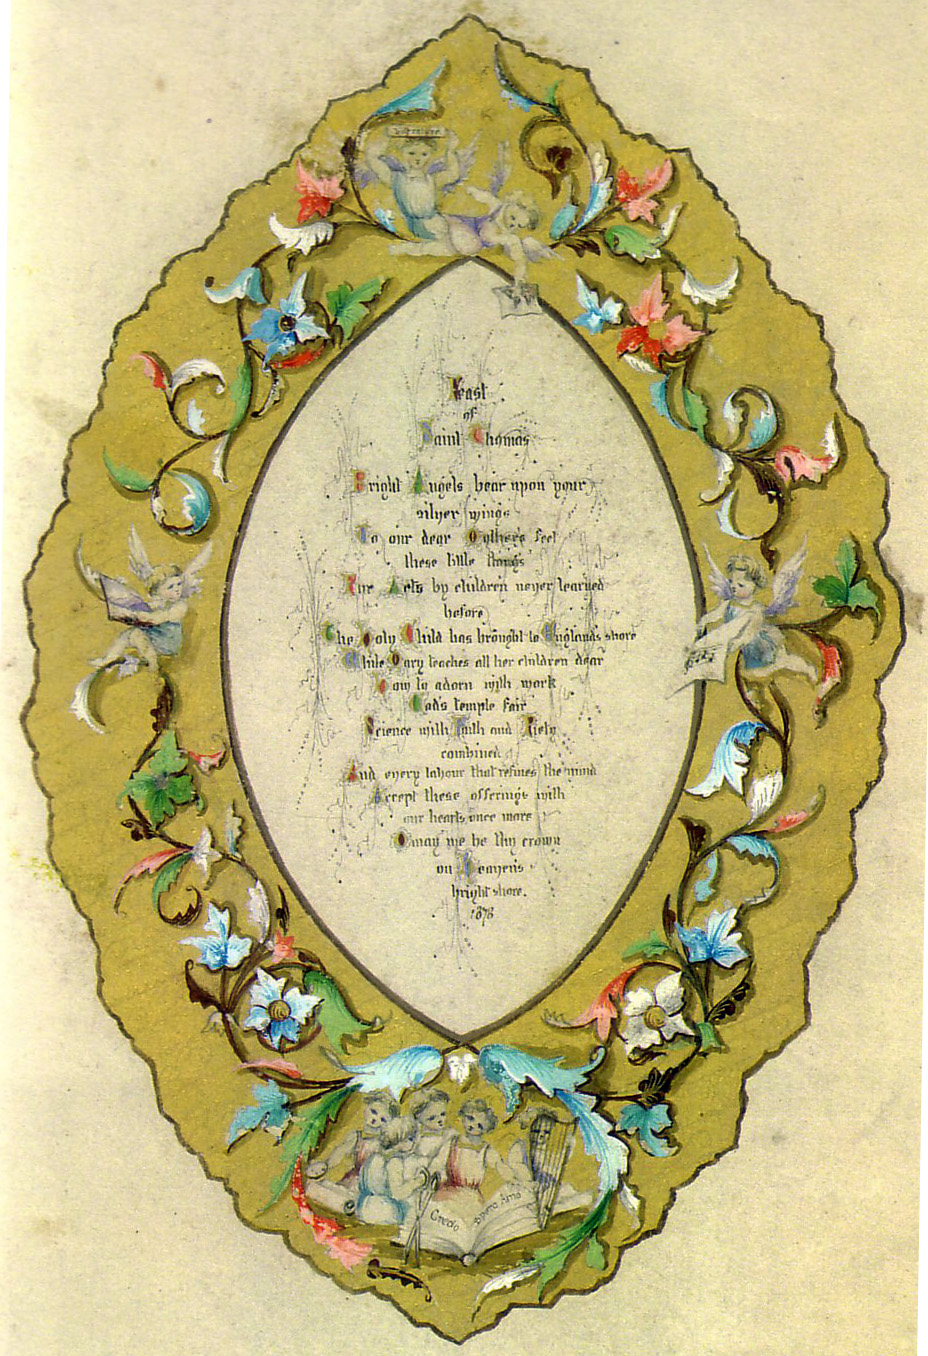 Feast
of
Saint Thomas
Bright Angels bear upon your
silver wings
To our dear Mother's feet
these little things
Fine Arts by children never learned
before
The Holy Child has brought to England's shore
While Mary teaches all her children dear
How to adorn with work
God's temple fair
Science with Faith and Piety
combined
And every labour that refines the mind
Accept these offerings with
our hearts once more
O may we be thy crown
on Heaven's
bright shore.
1878
Credo Spero Amo